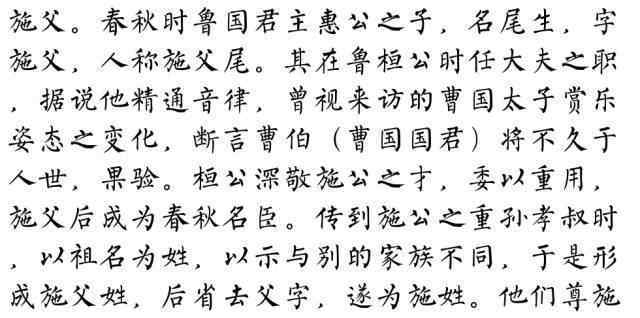 施父。春秋时鲁国君主惠公之子，名尾生，字
施父，人称施父尾。其在鲁桓公时任大夫之职
，据说他精通音律，曾视来访的曹国太子赏乐
姿态之变化，断言曹伯（曹国国君）将不久于
人世，果验。桓公深敬施公之才，委以重用，
施父后成为春秋名臣。传到施公之重孙孝叔时
，以祖名为姓，以示与别的家族不同，于是形
成施父姓，后省去父字，遂为施姓。他们尊施